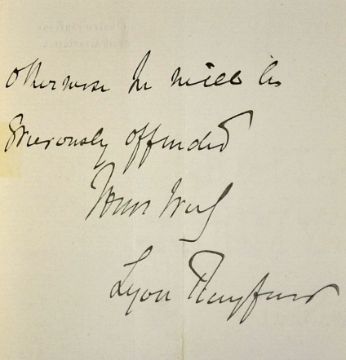 otherwise he will be
grievously offended
Yours truly
Lyon Playfair